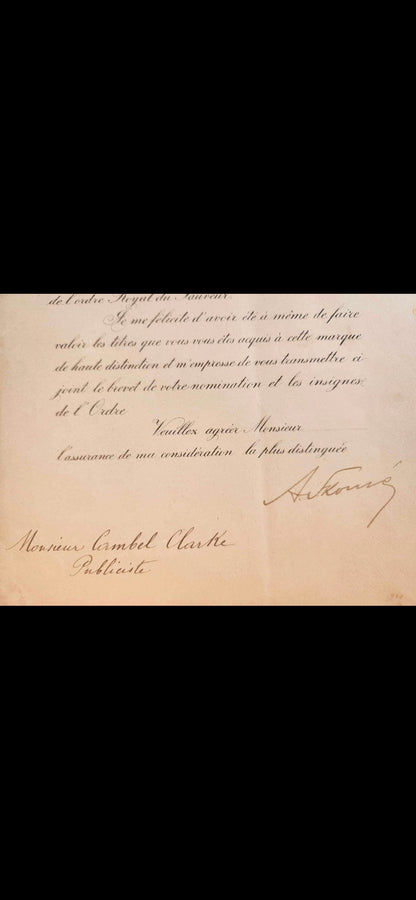 de l'ordre Royal du Sauveur.
Je me félicite d'avoir été à même de faire
valoir les titres que vous vous êtes acquis à cette marque
de haute distinction et m'empresse de vous transmettre ci
joint le brevet de votre nomination et les insignes
de l'Ordre
Veuillez agréer Monsieur
l'assurance de ma considération la plus distinguée
Monsieur Cambel Clarke
Publiciste